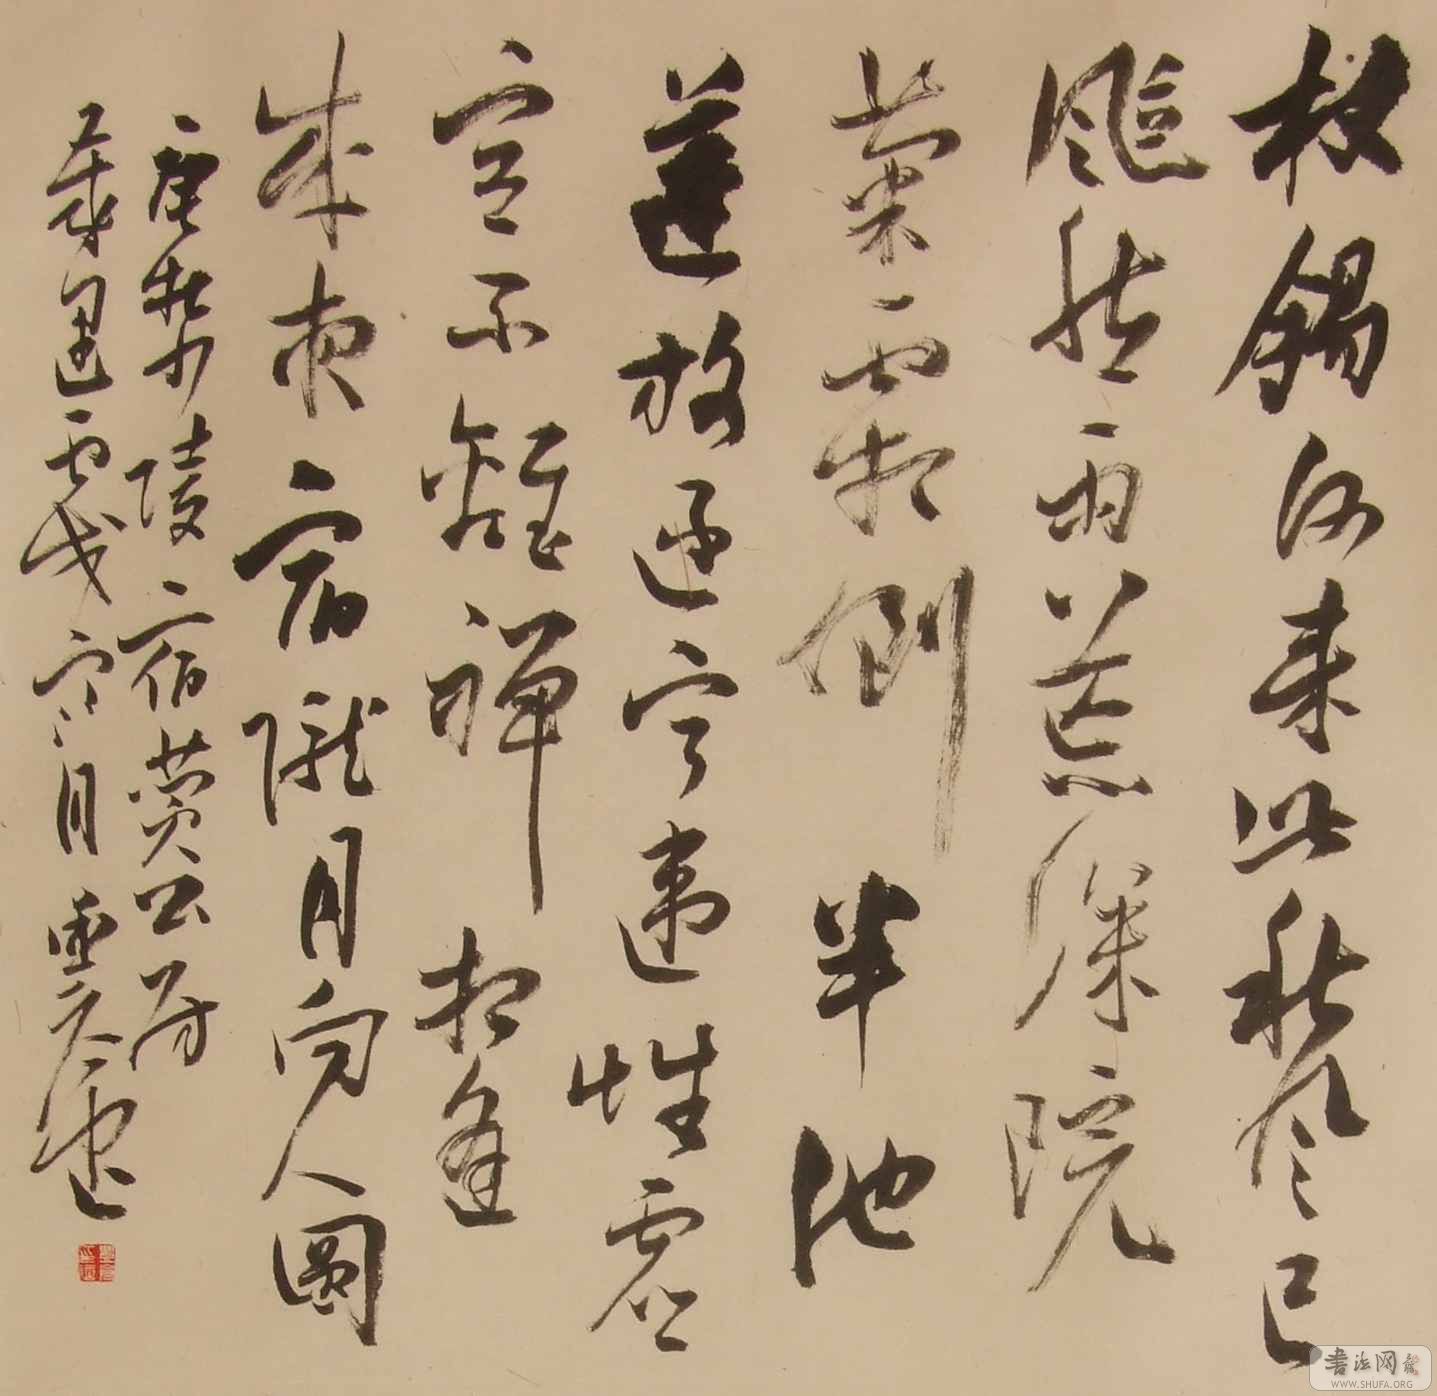 杖錫何來此秋風已
颯然雨荒深院
菊霜倒半池
蓮放逐寧違性虛
空不離禪相逢
成夜宿隴月向人圓
唐杜少陵宿贊公房
月
書法网
WWW.SHUFA.ORG